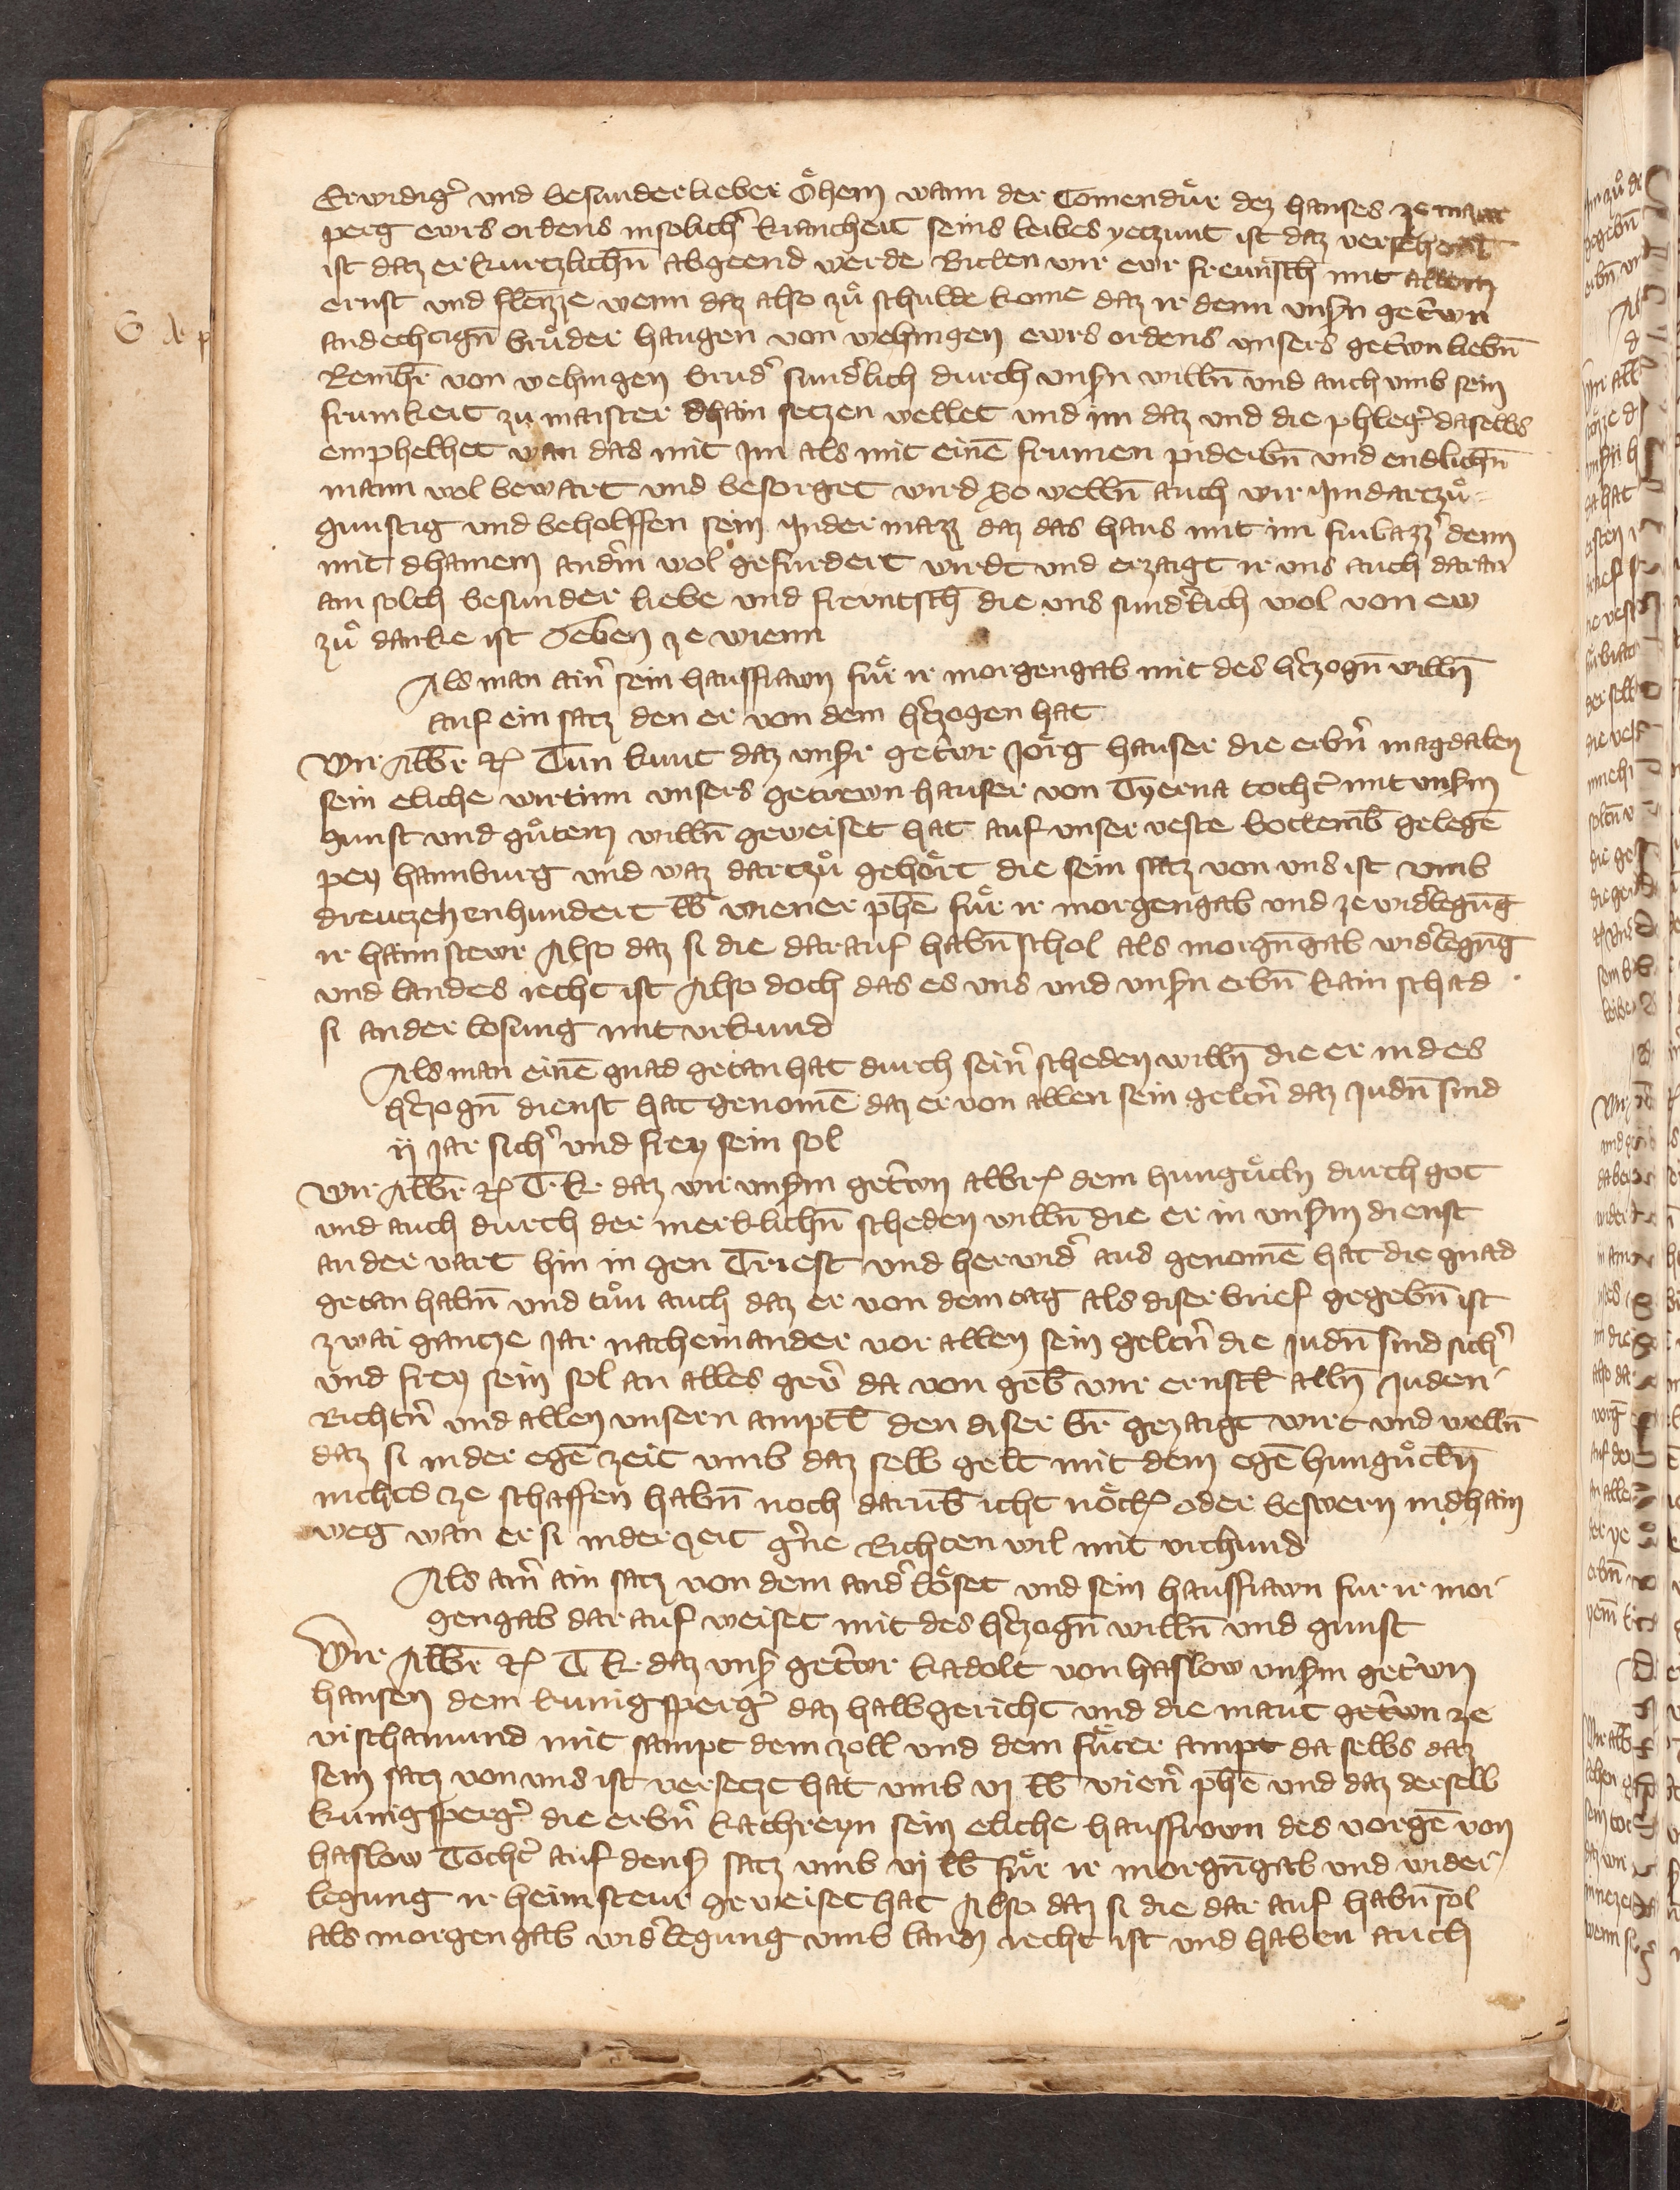 Erwirdigˀ und besunderlieber Öhem wann der Comendür dez hauses ze maur
perg ewrs ordens in solichˀ krancheit seins leibes yeczunt ist daz versehenl
ist daz er kurczlichn̄ abgeend werde Bitten wir ewr freuntsch̄ mit allem
ernst und fleizze wenn daz also zů schulde kome daz ir denn unsn̄ getˀwn
andechtign̄ brůder Haugen von wehingen ewrs ordens unsers getˀwn liebn̄
Reinhr̄ von wehingen brudˀ sundˀlich durch unsn̄ willn̄ und auch umb sein
frumkeit zu maister dhain seczen wellet und im daz und die phlegˀ daselbs
emphelhet wan das mit im als mit einē frumen piderbn̄ und endlichn̄
mann wol bewart und besorget wird So welln̄ auch wir im darczů
gunstig und beholffen sein in der mazz daz das haus mit im furbazzˀ denn
mit dhainem andˀm wol gefurdert wirdt und erzaigt ir uns auch daran
ain solch besunder liebe und freuntsch̄ die uns sundˀlich wol von ew
zů danke ist Geben ze wienn
Als man ainˀ sein hausfrawn für ir morgengab mit des hˀczogn̄ willn̄
auf ein sacz den er von dem hˀczogen hat
Wir Albr̄ etc Tun kunt daz unsr getˀwr Jörg hauser die erbn̄ magdalen
sein eliche wirtinn unsers getrewn hauser von Tyerna tochtˀ mit unsm
gunst und gůtem willn̄ geweiset hat auf unser veste Rotemb̄ gelegē
pey hainburg und waz darczů gehört die sein sacz von uns ist umb
dreuczehenhundert lb wiener phē für ir morgengab und ze widˀlegūg
ir haimstewr Also daz si die darauf habn̄ schol als morgn̄gab widˀlegūg
und landes recht ist Also doch das es uns und unsn̄ erbn̄ kain schad
si an der losung mit urkund
Als man einē gnad getan hat durch seinˀ scheden willn̄ die er in des
hˀczogn̄ dienst hat genomē daz er von allen sein geltn̄ daz Judn̄ sind
ij jar sichˀ und frey sein sol
Wir Albr̄ etc T k daz wir unsm getˀwn albr̄ dem hungůcln durch got
und auch durch der merklichn̄ scheden willn̄ die er in unsm dienst
an der vart hin in gen Triest und herwidˀ aus genomē hat die gnad
getan habn̄ und tůn auch daz er von dem tag als diser brief gegebn̄ ist
zwai gancze jar nacheinander vor allen sein geltn̄ die Judn̄ sind sichˀ
und frey sein sol an alles gevˀ da von geb̄ wir ernstl̄ alln̄ Juden
Richtˀn und allen unsern amptl̄ den diser br̄ gezaigt wirt und welln̄
daz si in der egē zeit umb daz selb gelt mit dem egē hungůcln̄
nichts ze schaffen habn̄ noch darūb icht nöttˀ oder beswern in dhain
weg wan er si in der zeit gˀne Richten wil mit urchund
Als ainˀ ain sacz von dem andˀ löset und sein hausfrawn fur ir mor
gengab dar auf weiset mit des hˀczogn̄ willn̄ und gunst
Wir Albr̄ etc T k daz unsˀ getˀwr kadolt von haslow unsm getˀwn
hansen dem kunigspergˀ daz halbgericht und die maut getˀwn ze
vischamund mit sampt dem zoll und dem fůter ampt da selbs daz
sein sacz von uns ist verseczt hat umb vj lb wienˀ phē und daz derselb
kunigspergˀ die erbn̄ kathreyn sein eliche hausfrown des vorgē von
haslow Tochtˀ auf densˀ sacz umb vj lb für ir morgn̄gab und wider
legung ir heimsteur geweiset hat Also daz si die dar auf habn̄ sol
als morgengab widˀlegung umb lanndˀ recht ist und haben auch